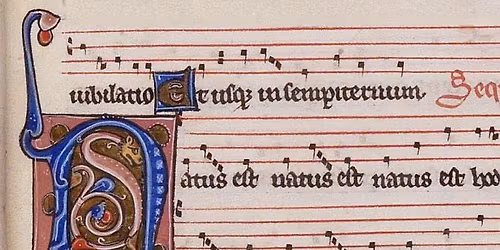 iubilatio Et usqꝫ in sempiternum. Seq
Natus est natus est natus est hod